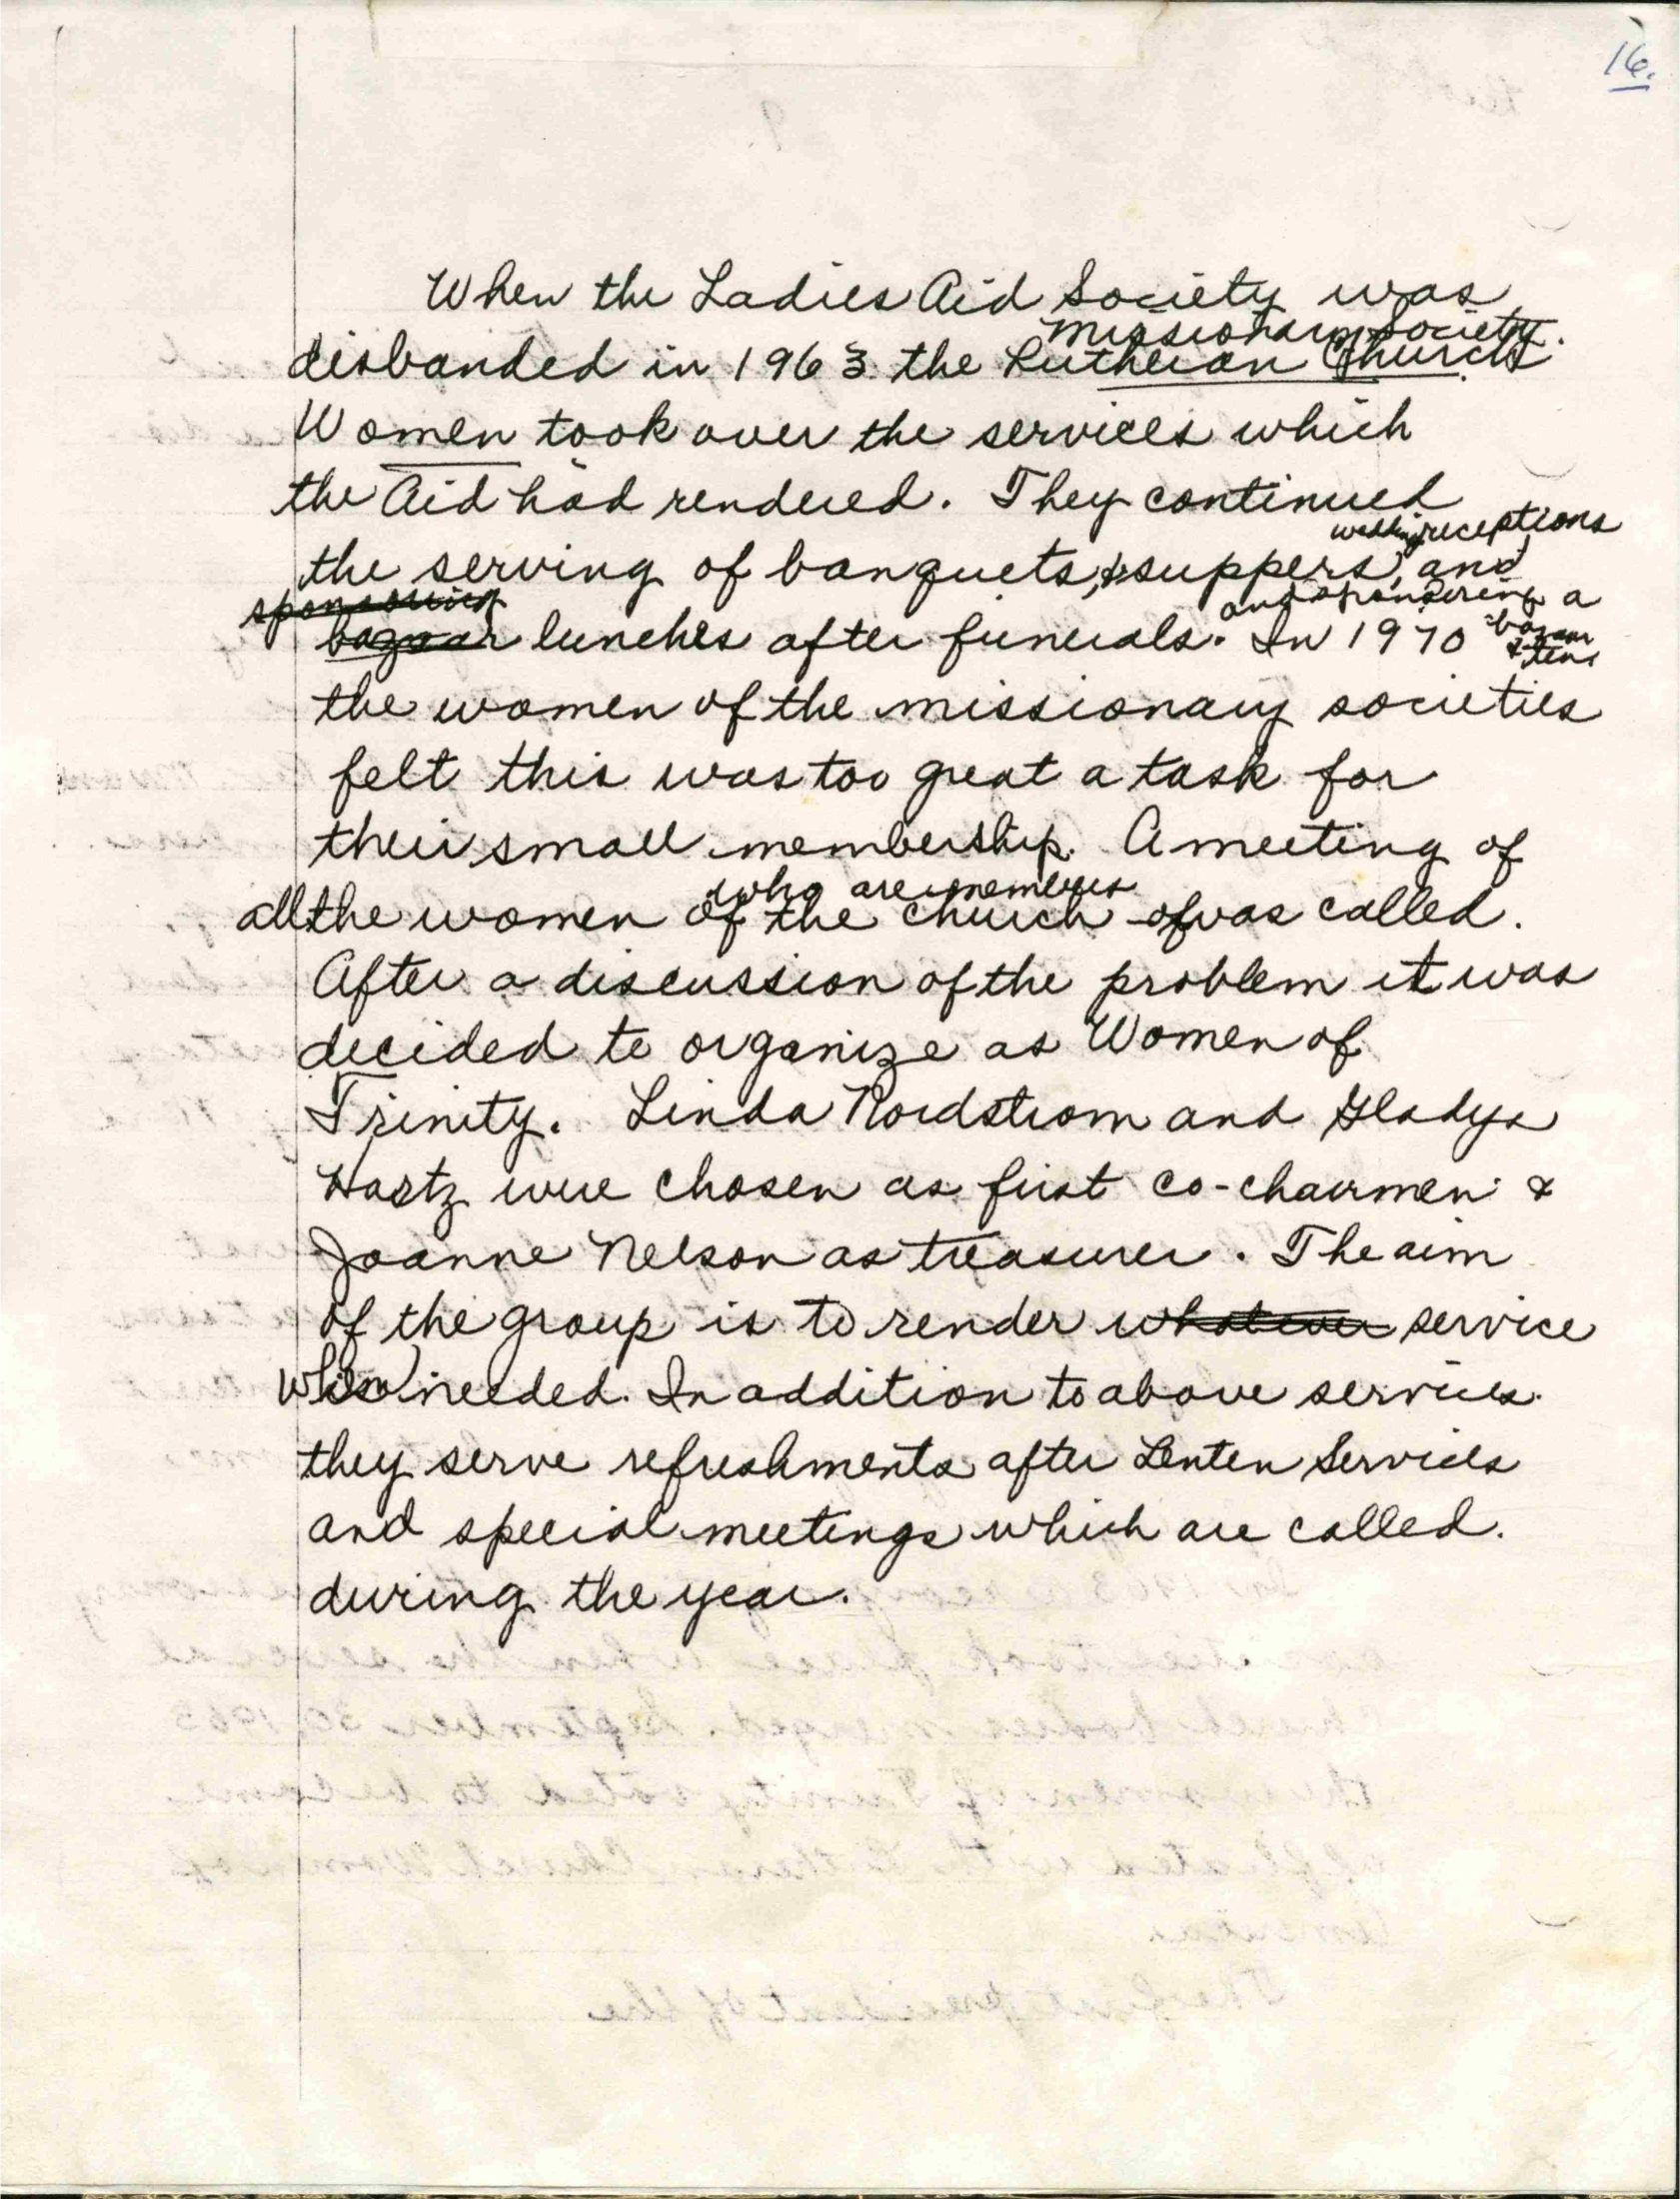 16.
When the Ladies Aid Society was
Missionary Society.
disbanded in 1963 the Lutheran Church
Women took over the services which
the Aid had rendered. They continued
wedding receptions
the serving of banquets, suppers, and
sponsoring and sponsering a
bazaar lunches after funerals. In 1970 bazaar
& tea
the women of the missionary societies
felt this was too great a task for
their small membership. A meeting of
who are members
all the women of the church of was called.
After a discussion of the problem it was
decided to organize as Women of
Trinity. Linda Nordstrom and Gladys
Hartz were chosen as first co-chairmen &
Joanne Nelson as treasurer. The aim
of the group is to render whatever service
when needed. In addition to above services
they serve refreshments after Lenten Services
and special meetings which are called.
during the year.